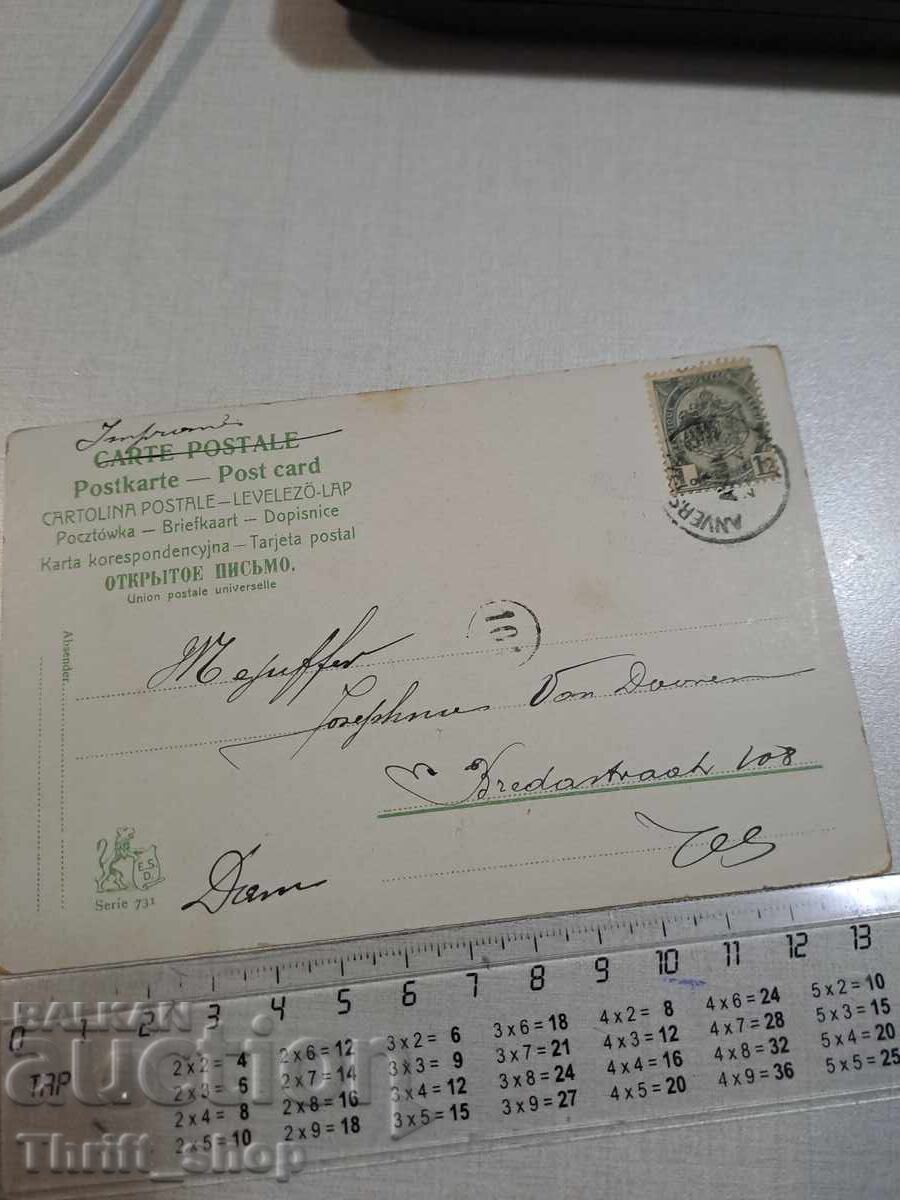 CARTE POSTALE
Postkarte — Post card
CARTOLINA POSTALE — LEVELEZŐ-LAP
Pocztówka — Briefkaart — Dopisnice
Karta korespondencyjna — Tarjeta postal
ОТКРЫТОЕ ПИСЬМО.
Union postale universelle
ANVERS
1
Absender
Mejuffer
Van Dooren
Bredastraat 108
Dam
E.S.
D.
Serie 731
0 1 2 3 4 5 6 7 8 9 10 11 12 13
TAP
2 x 2 = 4
2 x 3 = 6
2 x 4 = 8
2 x 5 = 10
2 x 6 = 12
2 x 7 = 14
2 x 8 = 16
2 x 9 = 18
3 x 2 = 6
3 x 3 = 9
3 x 4 = 12
3 x 5 = 15
3 x 6 = 18
3 x 7 = 21
3 x 8 = 24
3 x 9 = 27
4 x 2 = 8
4 x 3 = 12
4 x 4 = 16
4 x 5 = 20
4 x 6 = 24
4 x 7 = 28
4 x 8 = 32
4 x 9 = 36
5 x 2 = 10
5 x 3 = 15
5 x 4 = 20
5 x 5 = 25
BALKAN
auction
Thrift_shop